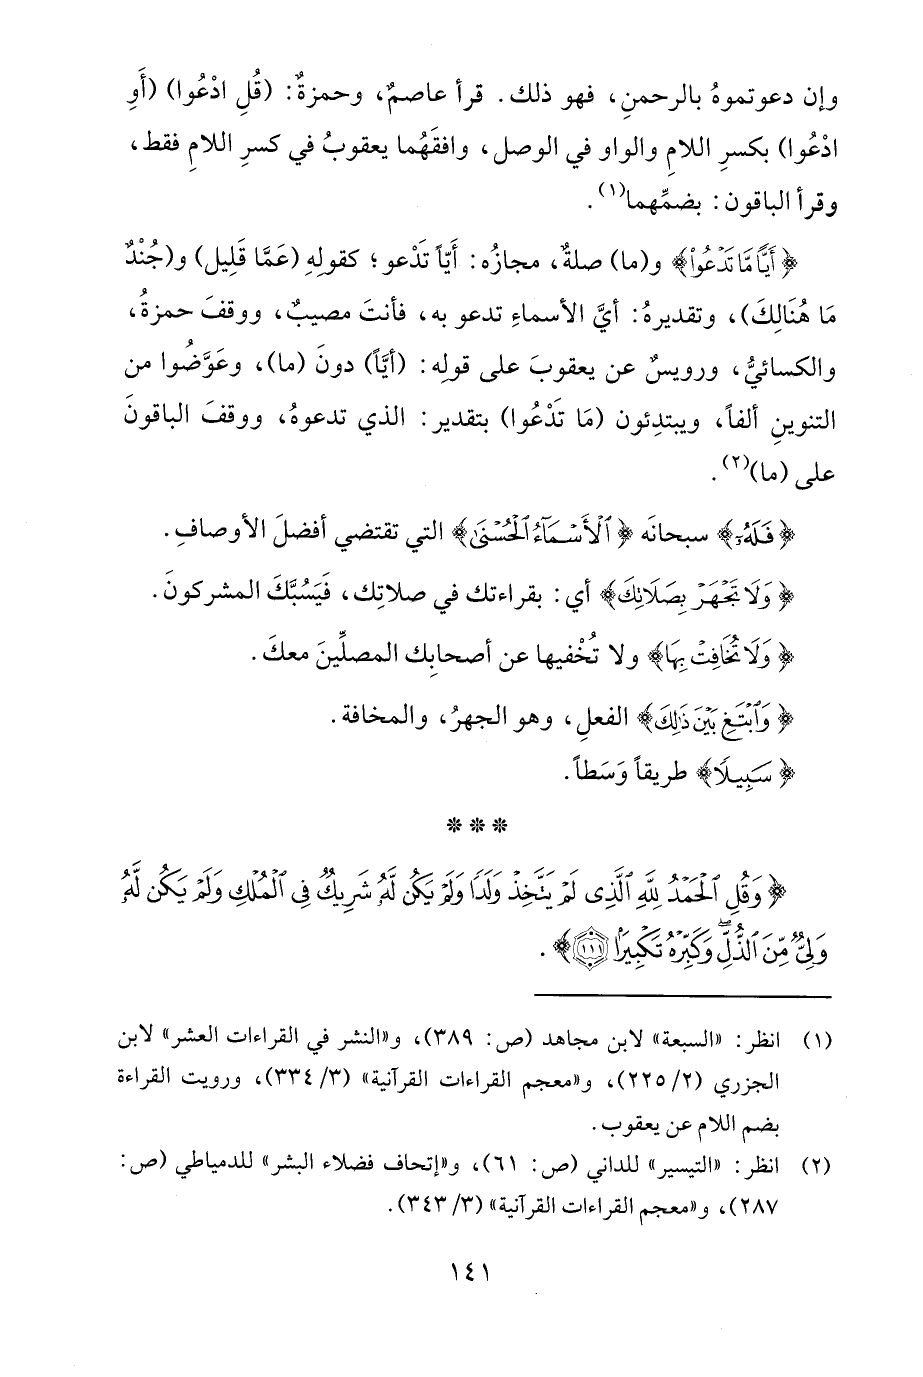 وإن دعوتموهُ بالرحمنِ، فهو ذلك. قرأ عاصمٌ، وحمزةٌ: (قُلِ ادْعُوا) (أَوِ
ادْعُوا) بكسرِ اللامِ والواوِ في الوصل، وافقَهُما يعقوبُ في كسرِ اللامِ فقط،
وقرأ الباقون: بضمِّهما(١).
﴿أَيًّا مَّا تَدْعُوا۟﴾ و(ما) صلةٌ، مجازُه: أَيّاً تَدْعو؛ كقولِهِ (عَمَّا قَلِيل) و(جُنْدٌ
مَا هُنَالِكَ)، وتقديرهُ: أيَّ الأسماءِ تدعو به، فأنتَ مصيبٌ، ووقفَ حمزةُ،
والكسائيُّ، ورويسٌ عن يعقوبَ على قولِه: (أَيَّاً) دونَ (ما)، وعَوَّضُوا من
التنوينِ ألفاً، ويبتدِئون (مَا تَدْعُوا) بتقدير: الذي تدعوهُ، ووقفَ الباقونَ
على (ما)(٢).
﴿فَلَهُ﴾ سبحانَه ﴿ٱلْأَسْمَآءُ ٱلْحُسْنَىٰ﴾ التي تقتضي أفضلَ الأوصافِ.
﴿وَلَا تَجْهَرْ بِصَلَاتِكَ﴾ أي: بقراءتك في صلاتِك، فَيَسُبَّكَ المشركونَ.
﴿وَلَا تُخَافِتْ بِهَا﴾ ولا تُخْفيها عن أصحابِك المصلِّينَ معكَ.
﴿وَٱبْتَغِ بَيْنَ ذَٰلِكَ﴾ الفعلِ، وهو الجهرُ، والمخافة.
﴿سَبِيلًا﴾ طريقاً وَسَطاً.
***
﴿وَقُلِ ٱلْحَمْدُ لِلَّهِ ٱلَّذِى لَمْ يَتَّخِذْ وَلَدًا وَلَمْ يَكُن لَّهُۥ شَرِيكٌ فِى ٱلْمُلْكِ وَلَمْ يَكُن لَّهُۥ
وَلِىٌّ مِّنَ ٱلذُّلِّ ۖ وَكَبِّرْهُ تَكْبِيرًا ١١١﴾.
(١) انظر: «السبعة» لابن مجاهد (ص: ٣٨٩)، و«النشر في القراءات العشر» لابن
الجزري (٢/ ٢٢٥)، و«معجم القراءات القرآنية» (٣/ ٣٣٤)، ورويت القراءة
بضم اللام عن يعقوب.
(٢) انظر: «التيسير» للداني (ص: ٦١)، و«إتحاف فضلاء البشر» للدمياطي (ص:
٢٨٧)، و«معجم القراءات القرآنية» (٣/ ٣٤٣).
١٤١